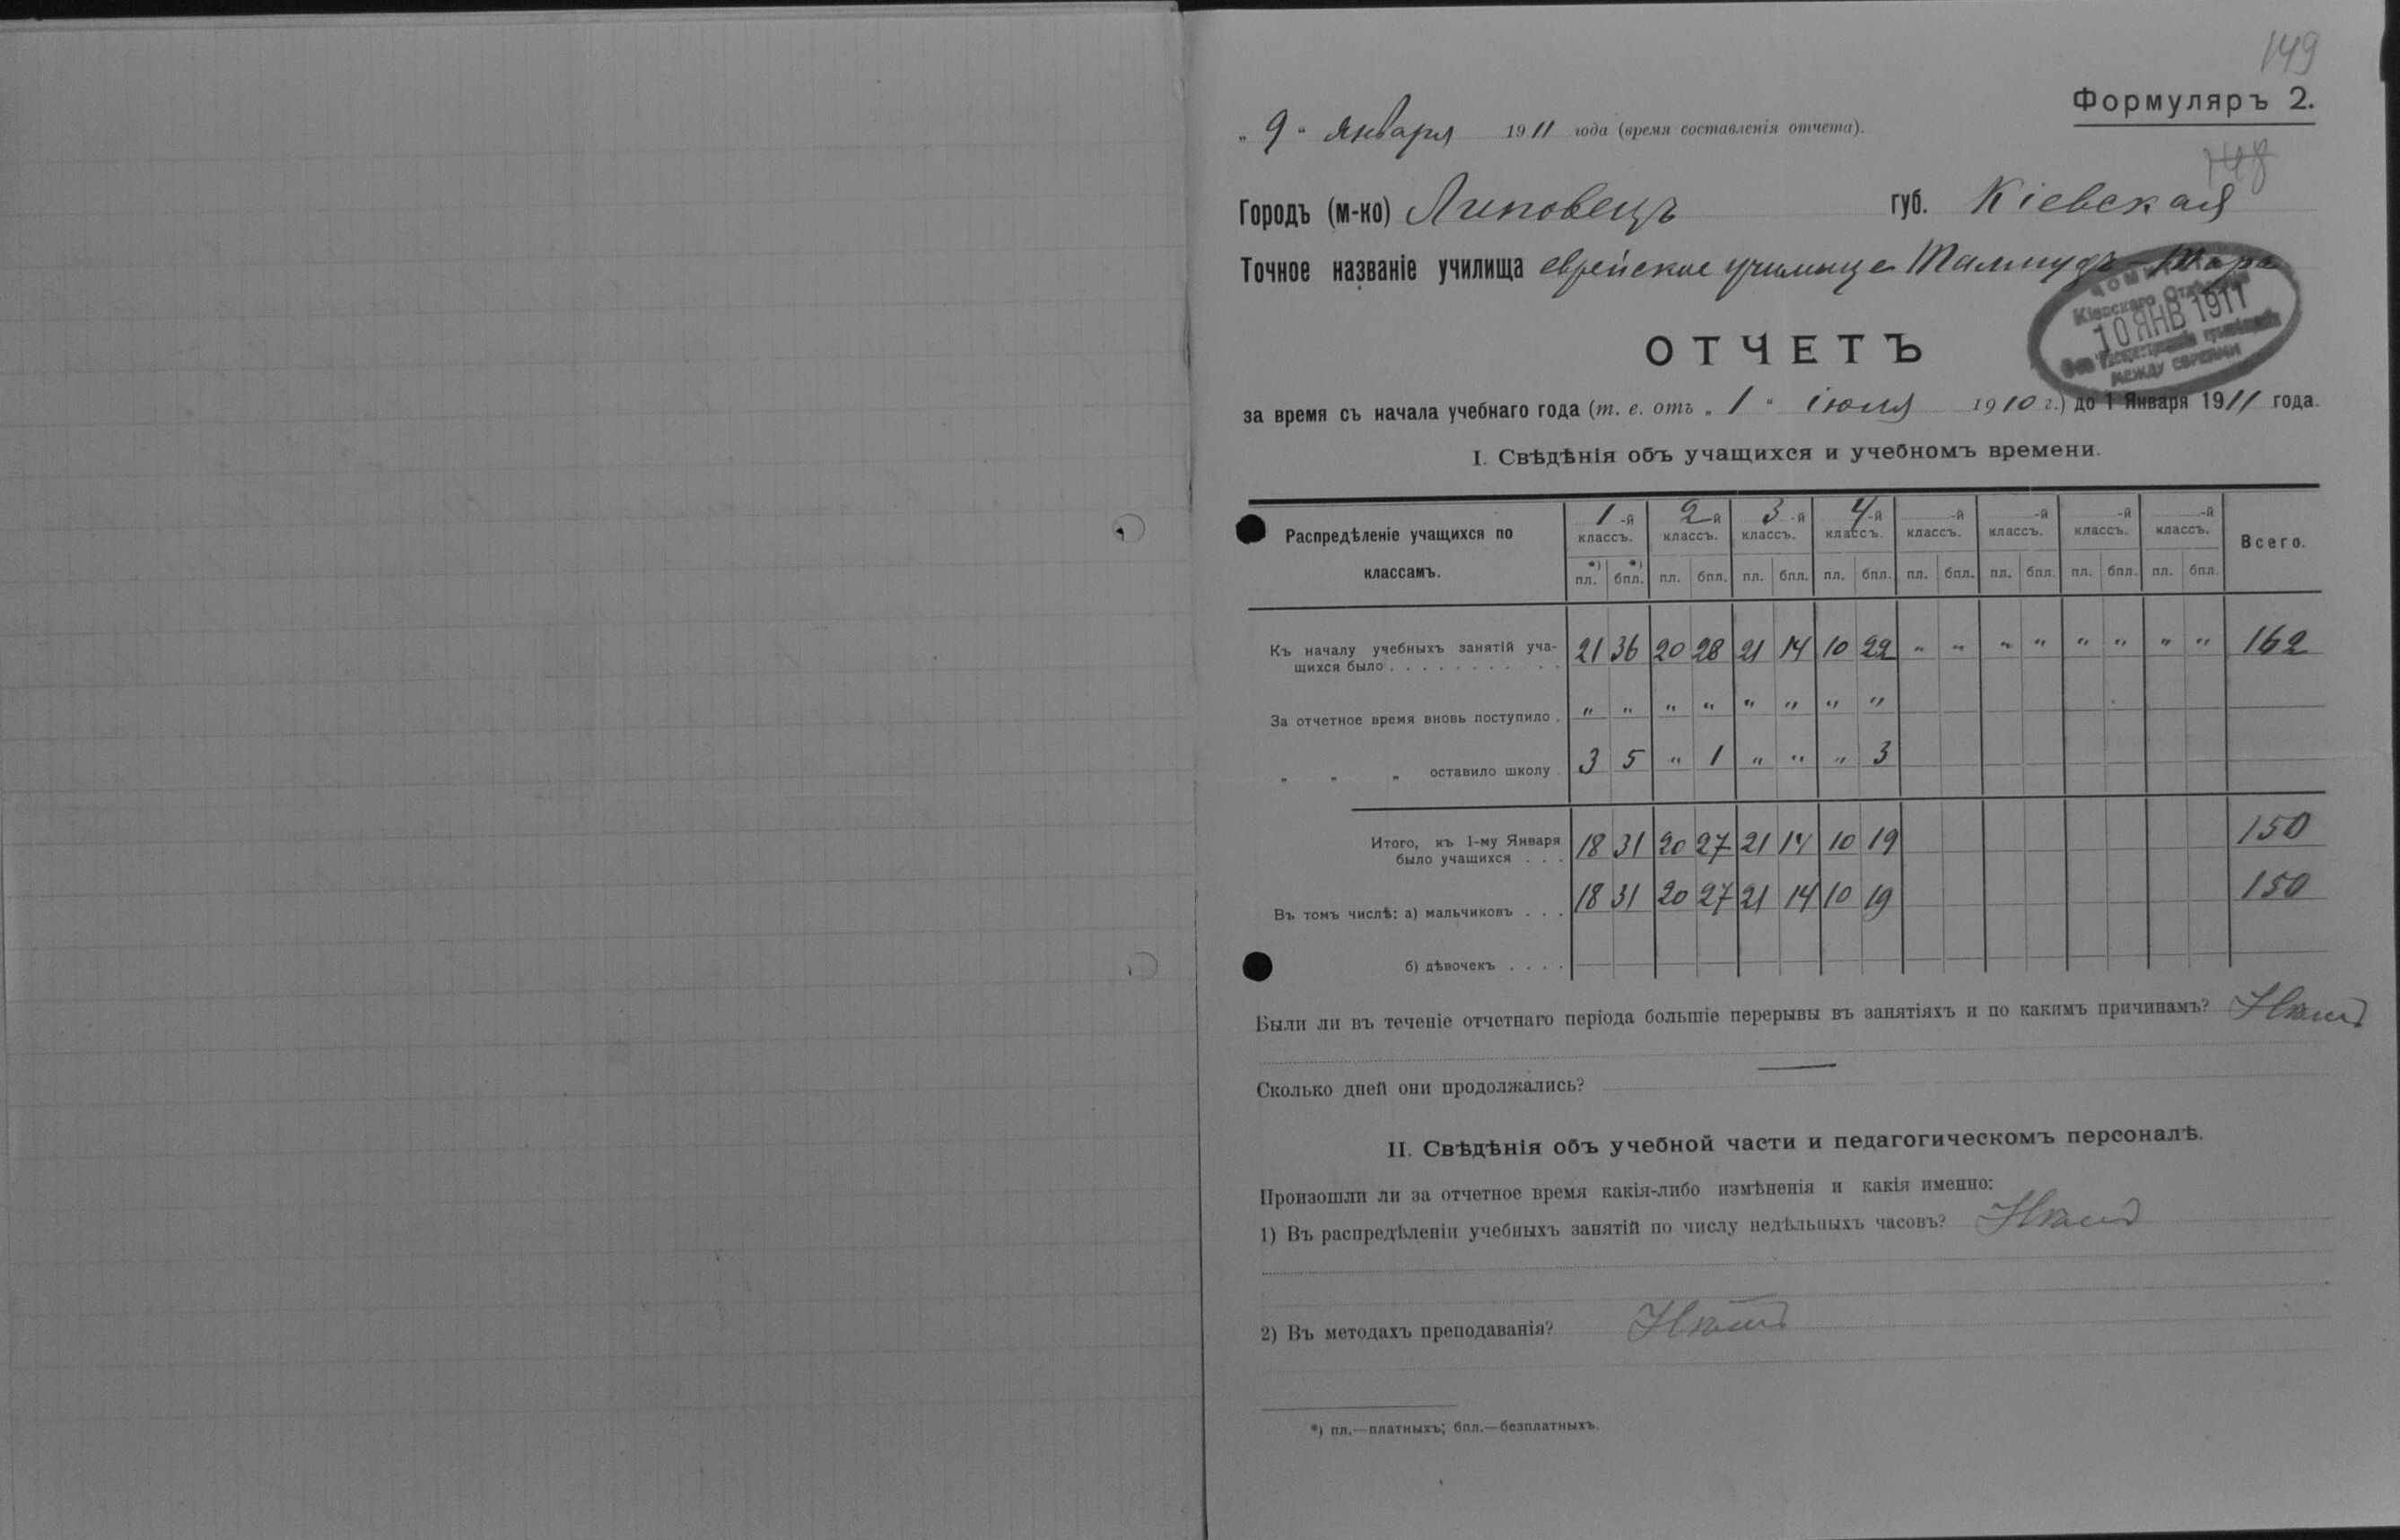 149
Формуляръ 2.
„ 9 “ Января 1911 года (время составленія отчета).
148
Городъ (м-ко) Липовецъ губ. Кіевская
Точное названіе училища еврейское училище Талмудъ-Тора
Кіевскаго Отдѣленія
10 ЯНВ 1911
между евреями
ОТЧЕТЪ
за время съ начала учебнаго года (т. е. отъ „ 1 “ іюля 1910 г.) до 1 Января 1911 года.
I. Свѣдѣнія объ учащихся и учебномъ времени.
Распредѣленіе учащихся по классамъ. 1-й классъ. 2-й классъ. 3-й классъ. 4-й классъ. -й классъ. -й классъ. -й классъ. -й классъ. Всего.
пл. *) бпл. *) пл. бпл. пл. бпл. пл. бпл. пл. бпл. пл. бпл. пл. бпл. пл. бпл.
Къ началу учебныхъ занятій уча-
щихся было . . . . . . . . . . 21 36 20 28 21 14 10 22 „ „ „ „ „ „ „ „ 162
За отчетное время вновь поступило . „ „ „ „ „ „ „ „
„ „ „ оставило школу . 3 5 „ 1 „ „ „ 3
Итого, къ 1-му Января
было учащихся . . . 18 31 20 27 21 14 10 19 150
Въ томъ числѣ: а) мальчиковъ . . . 18 31 20 27 21 14 10 19 150
б) дѣвочекъ . . . .
Были ли въ теченіе отчетнаго періода большіе перерывы въ занятіяхъ и по какимъ причинамъ?
Сколько дней они продолжались? —
II. Свѣдѣнія объ учебной части и педагогическомъ персоналѣ.
Произошли ли за отчетное время какія-либо измѣненія и какія именно:
1) Въ распредѣленіи учебныхъ занятій по числу недѣльныхъ часовъ?
2) Въ методахъ преподаванія?
*) пл.—платныхъ; бпл.—безплатныхъ.